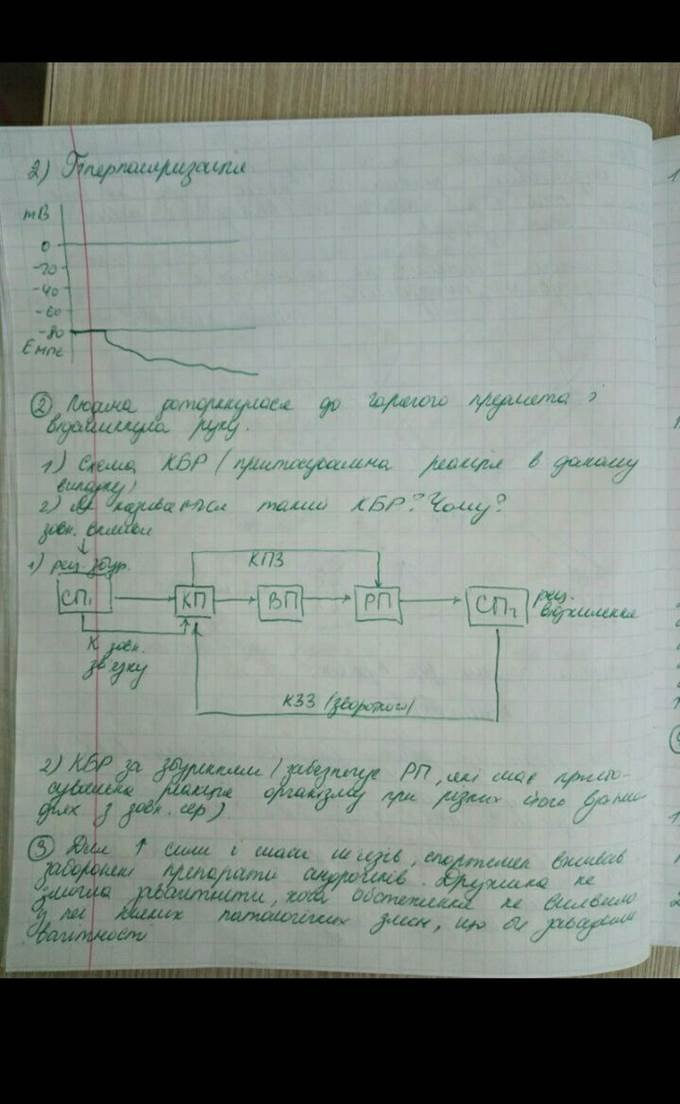 2) Гіперполяризація
mВ
0
-20
-40
-60
-80
Емпс
② Людина доторкнулася до гарячого предмета і
віддьмикнула руку.
1) Схема КБР (пристосувальна реакція в даному
випадку)
2) Як називається такий КБР? Чому?
зовн. вплив
1) рец. збур.
КПЗ
СП₁ КП ВП РП СП₂ рец.
відхилення
К зовн.
зв'язку
КЗЗ (зворотного)
2) КБР за збуренням (забезпечує РП, які має присто-
сувальна реакція організму при різних його
діях з зовн. сер)
③ Для ↑ сили і маси м'язів, спортсмен вживав
заборонені препарати андрогенів. Дружина не
змогла завагітніти, хоча обстеження не виявило
у неї ніяких патологічних змін, що би завадили
вагітності